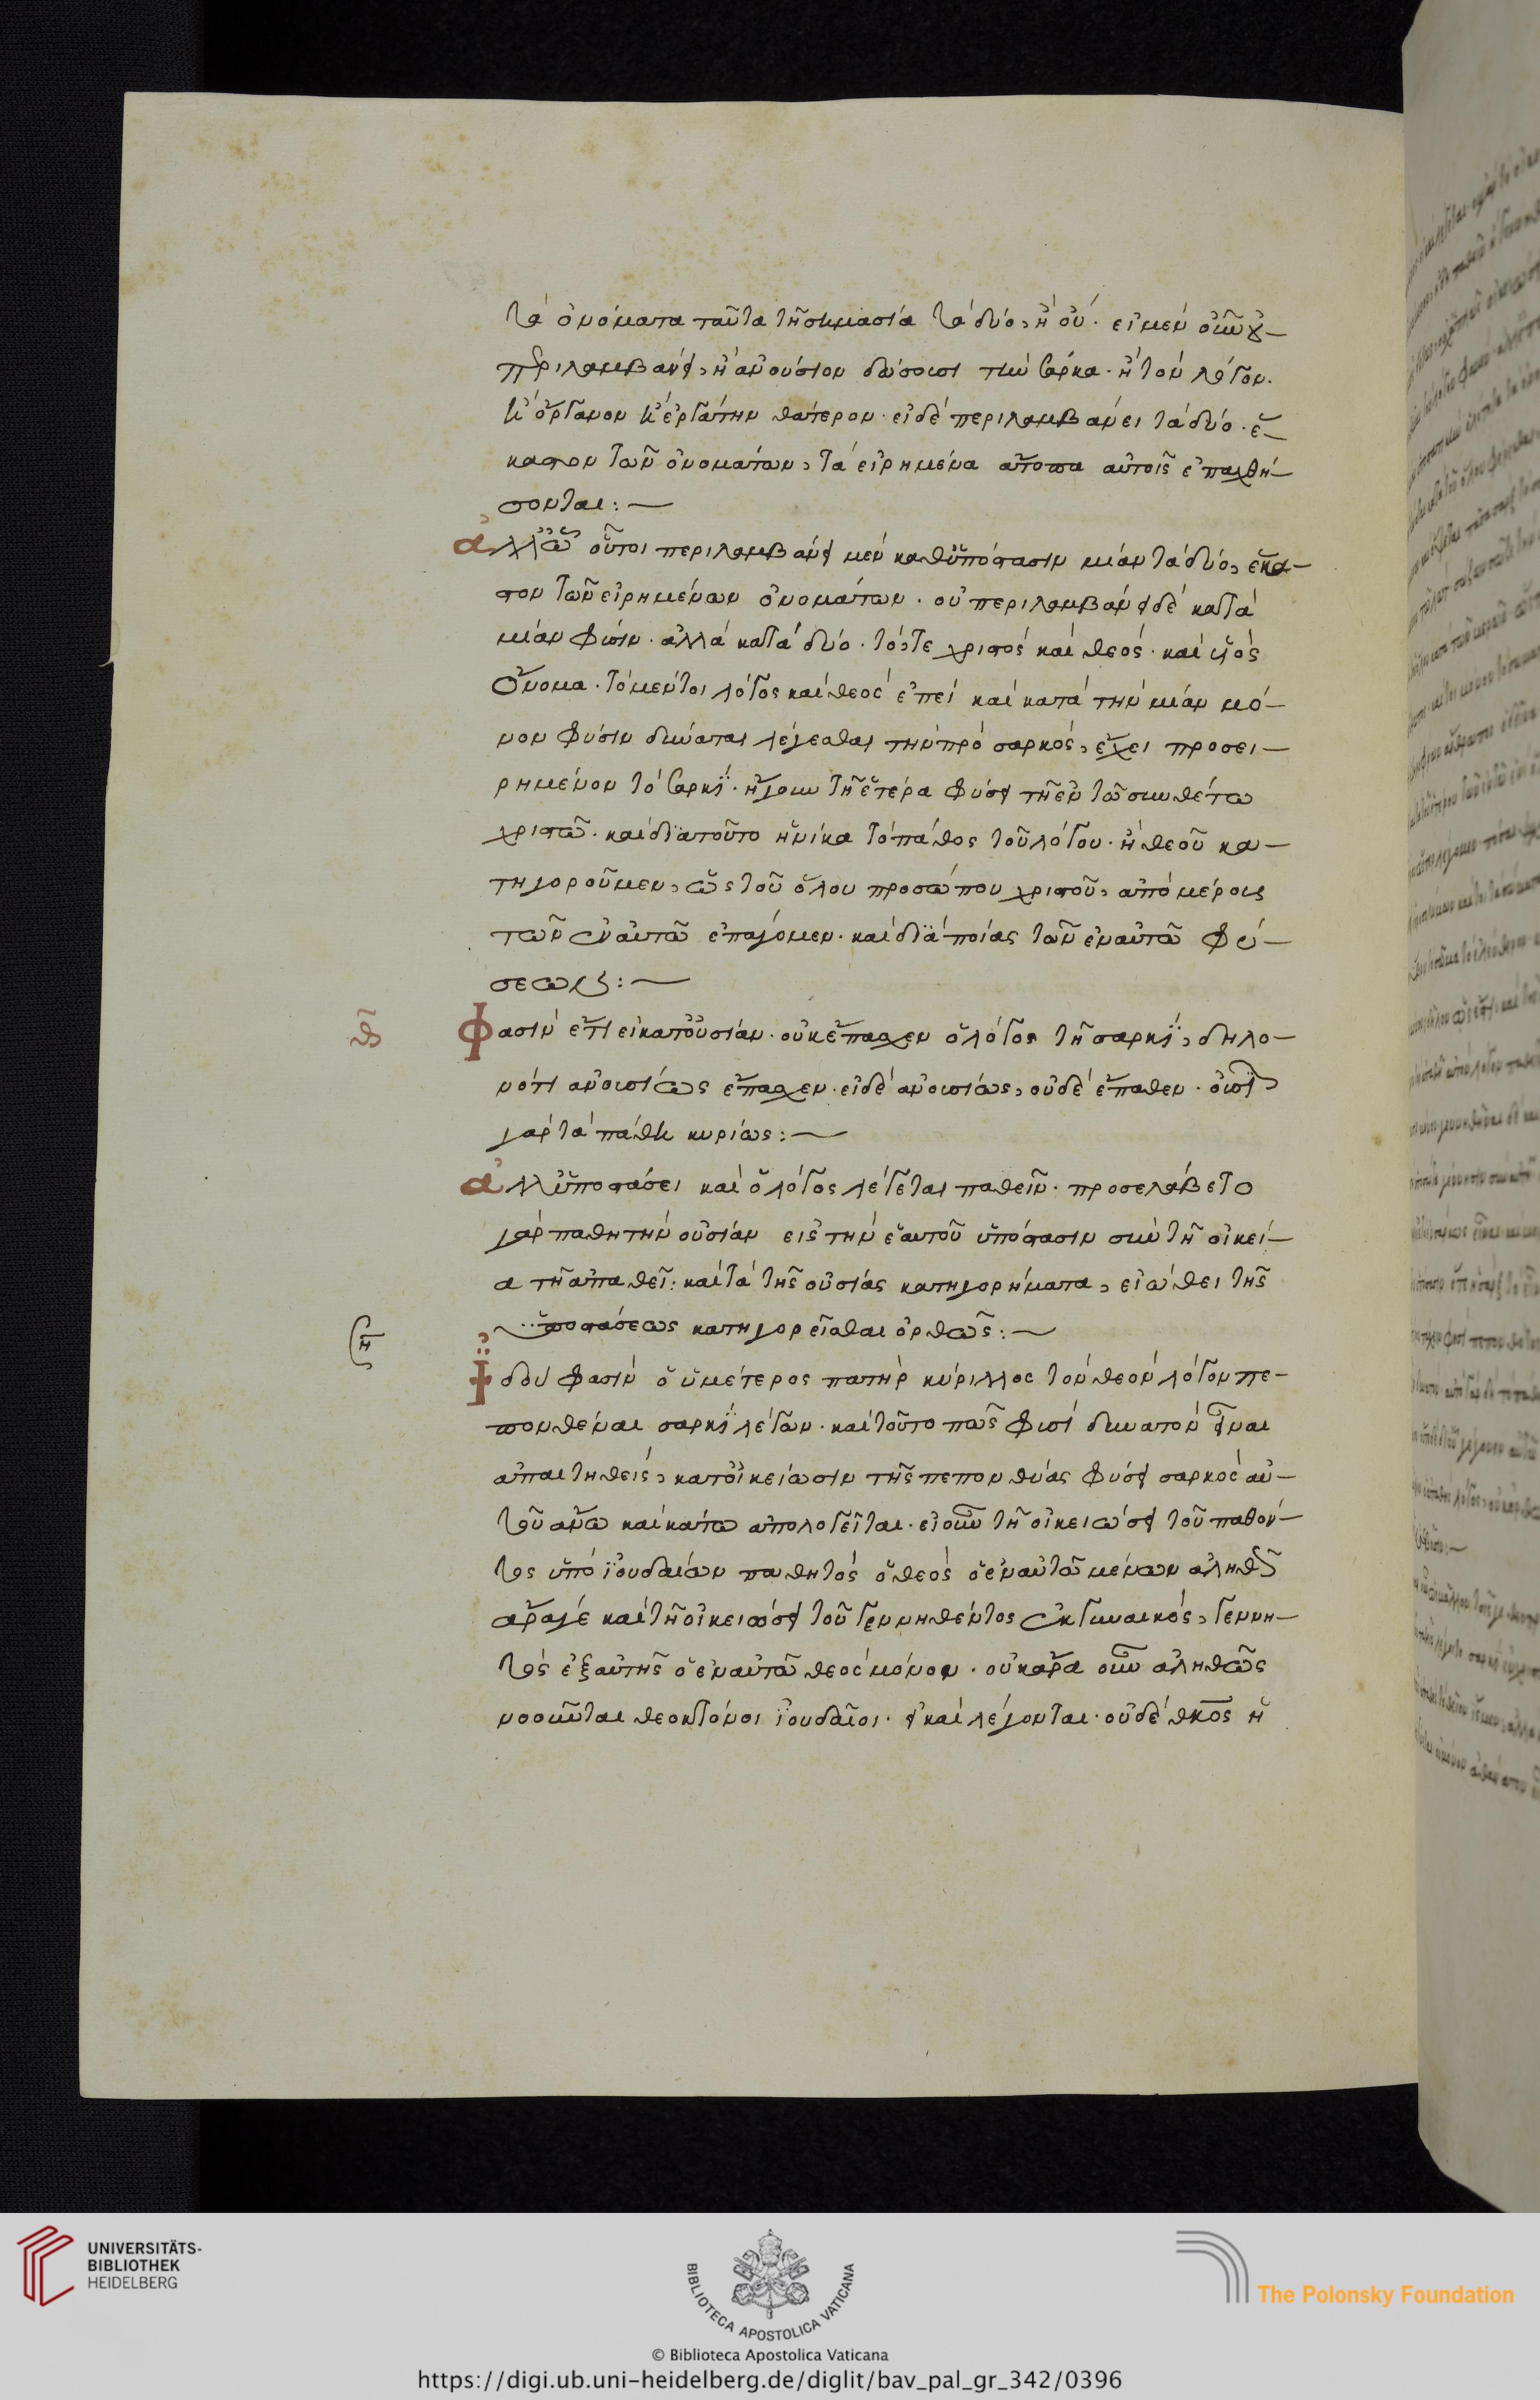 τὰ ὀνόματα ταῦτα τῇ σημασίᾳ τὰ δύο, ἢ οὔ· εἰ μὲν οὖν οὐ
περιλαμβάνει, ἢ ἀνούσιον δώσουσι τὴν σάρκα· ἢ τὸν λόγον.
κὶ ὄργανον κὶ ἐργάτην θάτερον· εἰ δὲ περιλαμβάνει τὰ δύο· ἕ-
καστον τῶν ὀνομάτων, τὰ εἰρημένα ἄτοπα αὐτοῖς ἐπαχθή-
σονται:—
ἀλλ' οὗτοι περιλαμβάνει μὲν καθ' ὑπόστασιν μίαν τὰ δύο, ἕκα-
στον τῶν εἰρημένων ὀνομάτων· οὐ περιλαμβάνει δὲ κατὰ
μίαν φύσιν· ἀλλὰ κατὰ δύο· τό, τε χριστὸς καὶ θεὸς· καὶ υἱὸς
ὄνομα· τὸ μέντοι λόγος καὶ θεὸς ἐπεὶ καὶ κατὰ τὴν μίαν μό-
νον φύσιν δύναται λέγεσθαι τὴν πρὸ σαρκὸς, ἔχει προσει-
ρημένον τὸ σαρκὶ· ἤγουν τῇ ἑτέρᾳ φύσει τῇ ἐν τῷ συνθέτω
χριστῷ· καὶ διατοῦτο ἡνίκα τὸ πάθος τοῦ λόγου· ἢ θεοῦ κα-
τηγοροῦμεν, ὡς τοῦ ὅλου προσώπου χριστοῦ, ἀπὸ μέρους
τῶν ἐν αὐτῷ ἐπάγομεν· καὶ διὰ ποίας τῶν ἐν αὐτῷ φύ-
σεων:—
θ
Φασὶν ἔτι εἰ κατ' οὐσίαν· οὐκ ἔπασχεν ὁ λόγος τῇ σαρκὶ, δηλο-
νότι ἀνουσίως ἔπασχεν· εἰ δὲ ἀνουσίως, οὐδὲ ἔπαθεν· οὐσία
γὰρ τὰ πάθη κυρίως:—
ἀλλ' ὑποστάσει καὶ ὁ λόγος λέγεται παθεῖν· προσελάβετο
γὰρ παθητὴν οὐσίαν εἰς τὴν ἑαυτοῦ ὑπόστασιν σὺν τῇ οἰκεί-
α τῇ ἀπαθεῖ: καὶ τὰ τῆς οὐσίας κατηγορήματα, εἰώθει τῆς
ὑποστάσεως κατηγορεῖσθαι ὀρθῶς:—
ση
Ἰδού φασὶν ὁ ὑμέτερος πατὴρ κύριλλος τὸν θεὸν λόγον πε-
πονθέναι σαρκὶ λέγων· καὶ τοῦτο πῶς φησὶ δυνατὸν εἶναι
ἀπαιτηθεὶς, κατ' οἰκείωσιν τῆς πεπονθυίας φύσει σαρκὸς αὐ-
τοῦ ἄνω καὶ κάτω ἀπολογεῖται· εἰ οὖν τῇ οἰκειώσει τοῦ παθόν-
τος ὑπὸ ἰουδαίων παθητὸς ὁ θεὸς ὁ ἐν αὐτῷ μένων ἀληθῶς
ἄραγε καὶ τῇ οἰκειώσει τοῦ γεννηθέντος ἐκ γυναικὸς, γεννη-
τὸς ἐξ αὐτῆς ὁ ἐν αὐτῷ θεὸς μόνον· οὐκ ἄρα οὖν ἀληθῶς
νοοῦνται θεοκτόνοι ἰουδαῖοι· εἰ καὶ λέγονται· οὐδὲ θκος ἡ
UNIVERSITÄTS-
BIBLIOTHEK
HEIDELBERG
BIBLIOTECA APOSTOLICA VATICANA
The Polonsky Foundation
© Biblioteca Apostolica Vaticana
https://digi.ub.uni-heidelberg.de/diglit/bav_pal_gr_342/0396